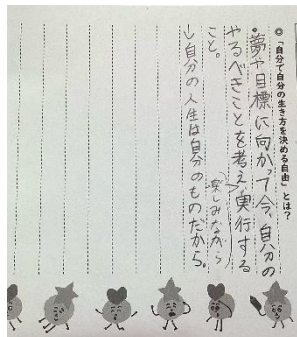 ◎「自分で自分の生き方を決める自由」とは？
・夢や目標に向かって今、自分の
やるべきことを考え、実行する
楽しみながら
こと。
↳自分の人生は自分のものだから。